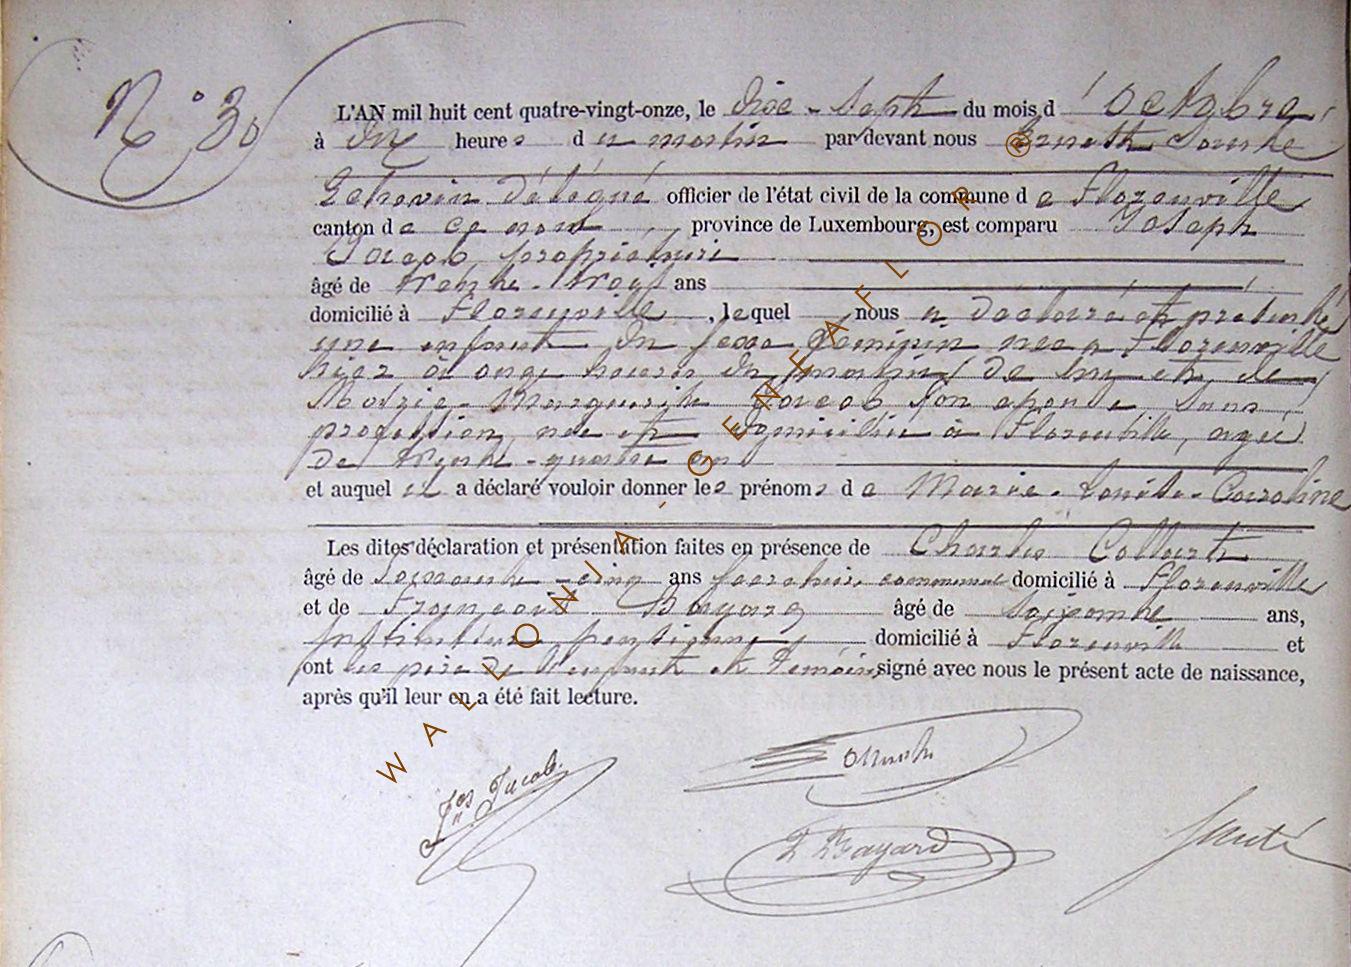 N° 30
L'AN mil huit cent quatre-vingt-onze, le dix-sept du mois d'octobre
à dix heures du matin par devant nous Ernest
Echevin délégué officier de l'état civil de la commune de Florenville
canton de ce nom, province de Luxembourg, est comparu Joseph
Jacob propriétaire
âgé de trente-trois ans
domicilié à Florenville, lequel nous a déclaré et présenté
une enfant du sexe féminin née à Florenville
hier à onze heures du matin, de lui et de
Marie-Marguerite Jacob son épouse sans
profession, née et domiciliée à Florenville, agée
de trente-quatre ans
et auquel il a déclaré vouloir donner les prénoms de Marie-Louise-Caroline
Les dites déclaration et présentation faites en présence de Charles Collart
âgé de soixante-cinq ans communal domicilié à Florenville
et de François Bayard âgé de soixante ans,
instituteur pensionné domicilié à Florenville et
ont les père de l'enfant et témoins signé avec nous le présent acte de naissance,
après qu'il leur en a été fait lecture.
Jos Jacob
F Bayard
WALLONIA-GENEAFLOR®